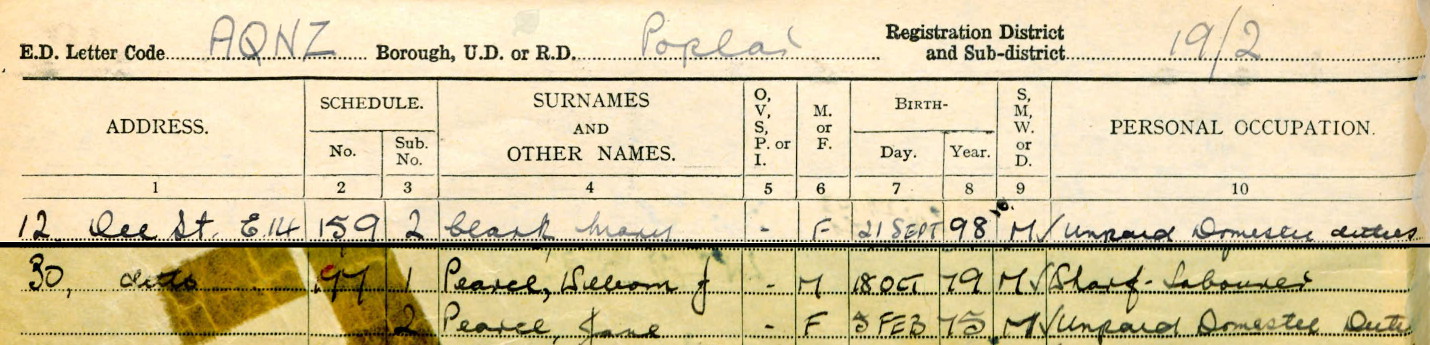 E.D. Letter Code AQNZ Borough, U.D. or R.D. Poplar Registration District and Sub-district 19/2
ADDRESS. SCHEDULE. SURNAMES AND OTHER NAMES. O, V, S, P. or I. M. or F. BIRTH- S, M, W. or D. PERSONAL OCCUPATION.
No. Sub. No. Day. Year.
1 2 3 4 5 6 7 8 9 10
12 Dee St. E.14 159 2 Clark Mary - F 21 SEPT 98 M Unpaid Domestic duties
30, ditto 197 1 Pearce, William J - M 18 OCT 79 M Wharf-Labourer
2 Pearce, Jane - F 5 FEB 75 M Unpaid Domestic Duti